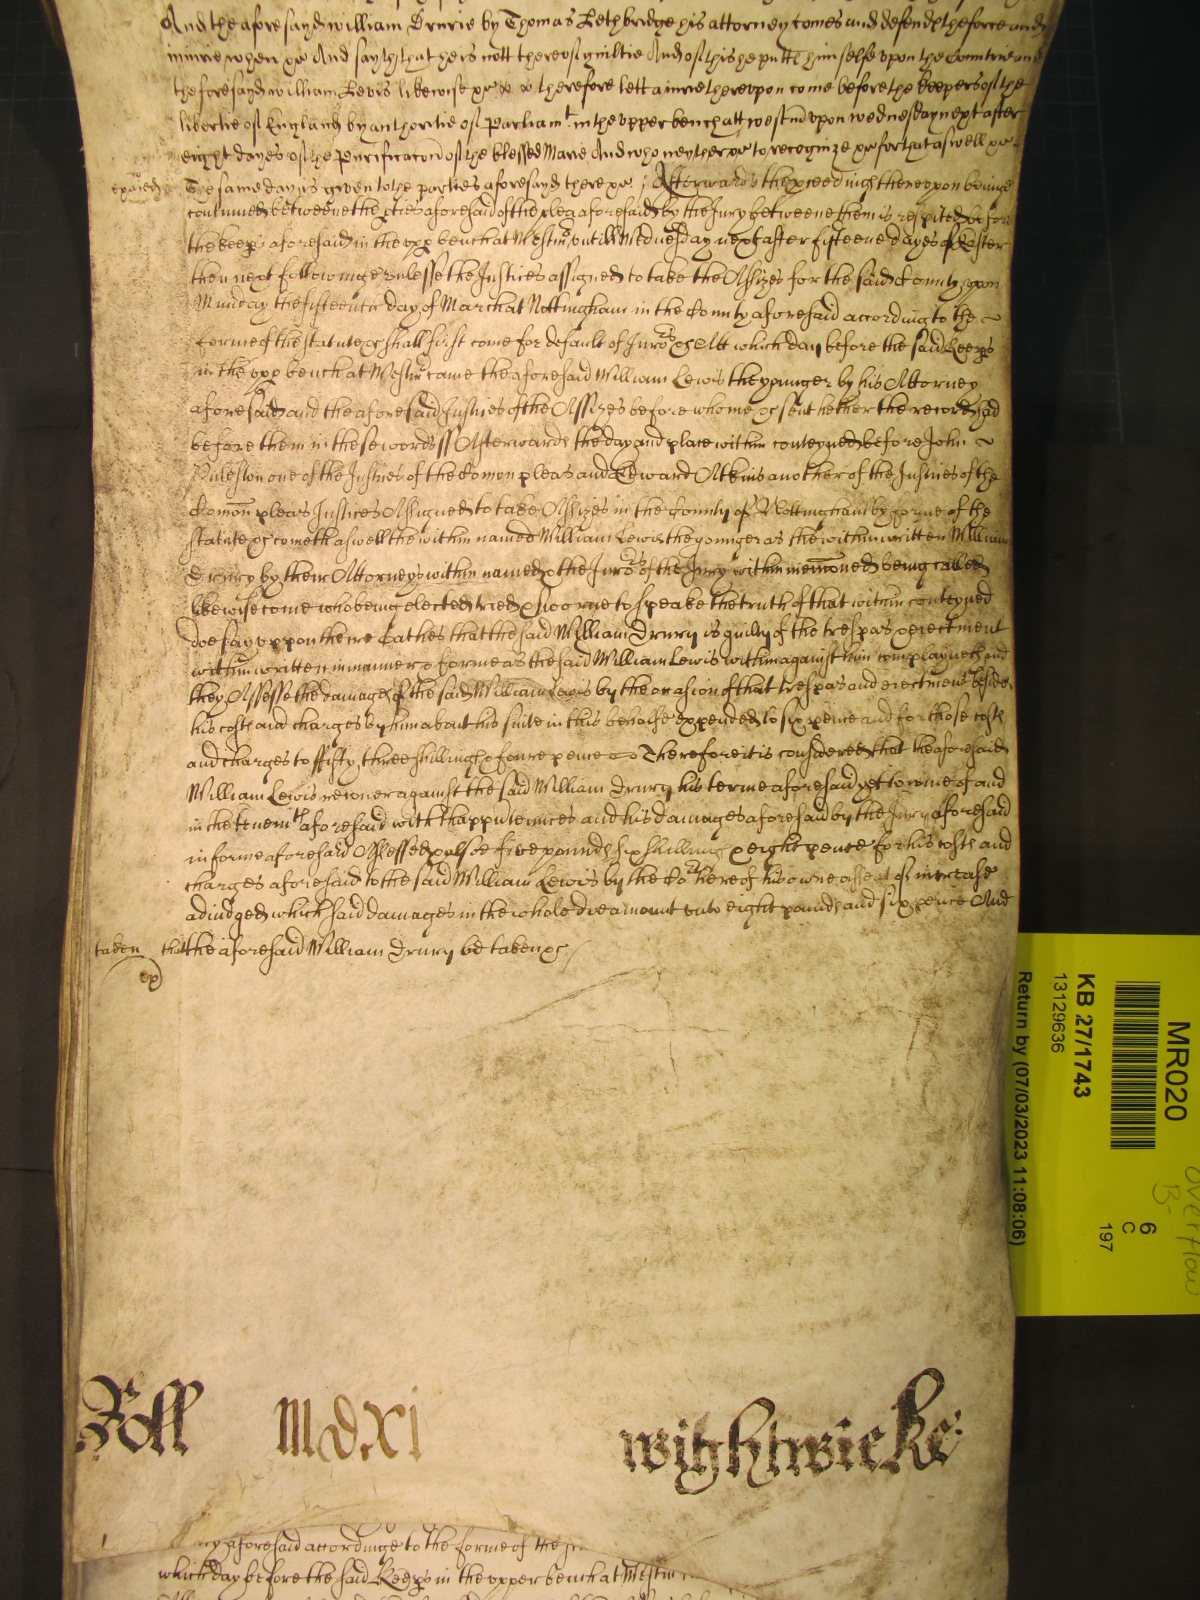 And the aforesayd William Drurie by Thomas Lethbridge his attorney comes and defend the force and
iniurie when &c And sayth that he is nott thereof guiltie And of this he putts himselfe vpon the Countrie and
the foresayd William Lewis likewise &c & & therefore lett a iurie therevpon come before the keepers of the
libertie of England by authoritie of Parliamt in the vpper bench att westm vpon wednesday next after
eight dayes of the Purificacon of the blessed Marie And who neyther &c to recognize &c for that aswell &c
The same day is given to the parties aforesayd there &c / Afterwards the pceedings therevpon beinge
continued betweene the pties aforesaid of the plea aforesaid by the Jury betweene them is respited before
the keeps aforesaid in the vpp bench at Westmr vntill Wednesday next after fifteene dayes of Easter
then next followinge vnlesse the Justices assigned to take the Assizes for the said County vpon
Munday the fifteenth day of March at Nottingham in the County aforesaid according to the
forme of the statute &c shall first come for default of Jurors &c Att which day before the said Keeps
in the vpp bench at Westmr came the aforesaid William Lewis the younger by his Attorney
aforesaid and the aforesaid Justices of the Assizes before whome &c sent hether the record had
before them in these words ss Afterwards the day and place within conteyned before John
Puleston one of the Justices of the Comon pleas and Edward Atkins another of the Justices of the
Comon pleas Justices Assigned to take Assizes in the County of Nottingham by forme of the
statute &c cometh aswell the within named William Lewis the younger as the within written William
Drury by their Attorneys within named & the Jurors of the Jury within menconed being called
likewise come who being elected tried & sworne to speake the truth of that within conteyned
doe say vppon theire Oathes that the said William Drury is guilty of the trespas & eiectment
within written in manner & forme as the said William Lewis within against him complayneth and
they Assesse the damages of the said William Lewis by the occasion of that trespas and eiectment beside
his costs and charges by him about his suite in this behalfe expended to six pence and for those costs
and charges to ffifty three shillings & foure pence Therefore it is considered that the aforesaid
William Lewis recouer against the said William Drury his terme aforesaid yet to come of and
in the tenemts aforesaid with thapputennces and his damages aforesaid by the Jury aforesaid
in forme aforesaid Assessed & alsoe five pounds six shillings & eight pence for his costs and
charges aforesaid to the said William Lewis by the Cort here of his owne assent of increase
adiudged which said damages in the whole doe amount vnto eight pounds and six pence And
taken that the aforesaid William Drury be taken &c /
Roll MDXI wightwicke
aforesaid accordinge to the forme of the
which day before the said Keeps in the vpper bench at Westmr
MR020
KB 27/1743
13129636
Return by (07/03/2023 11:08:06)
6
C
197
Overflow
B-